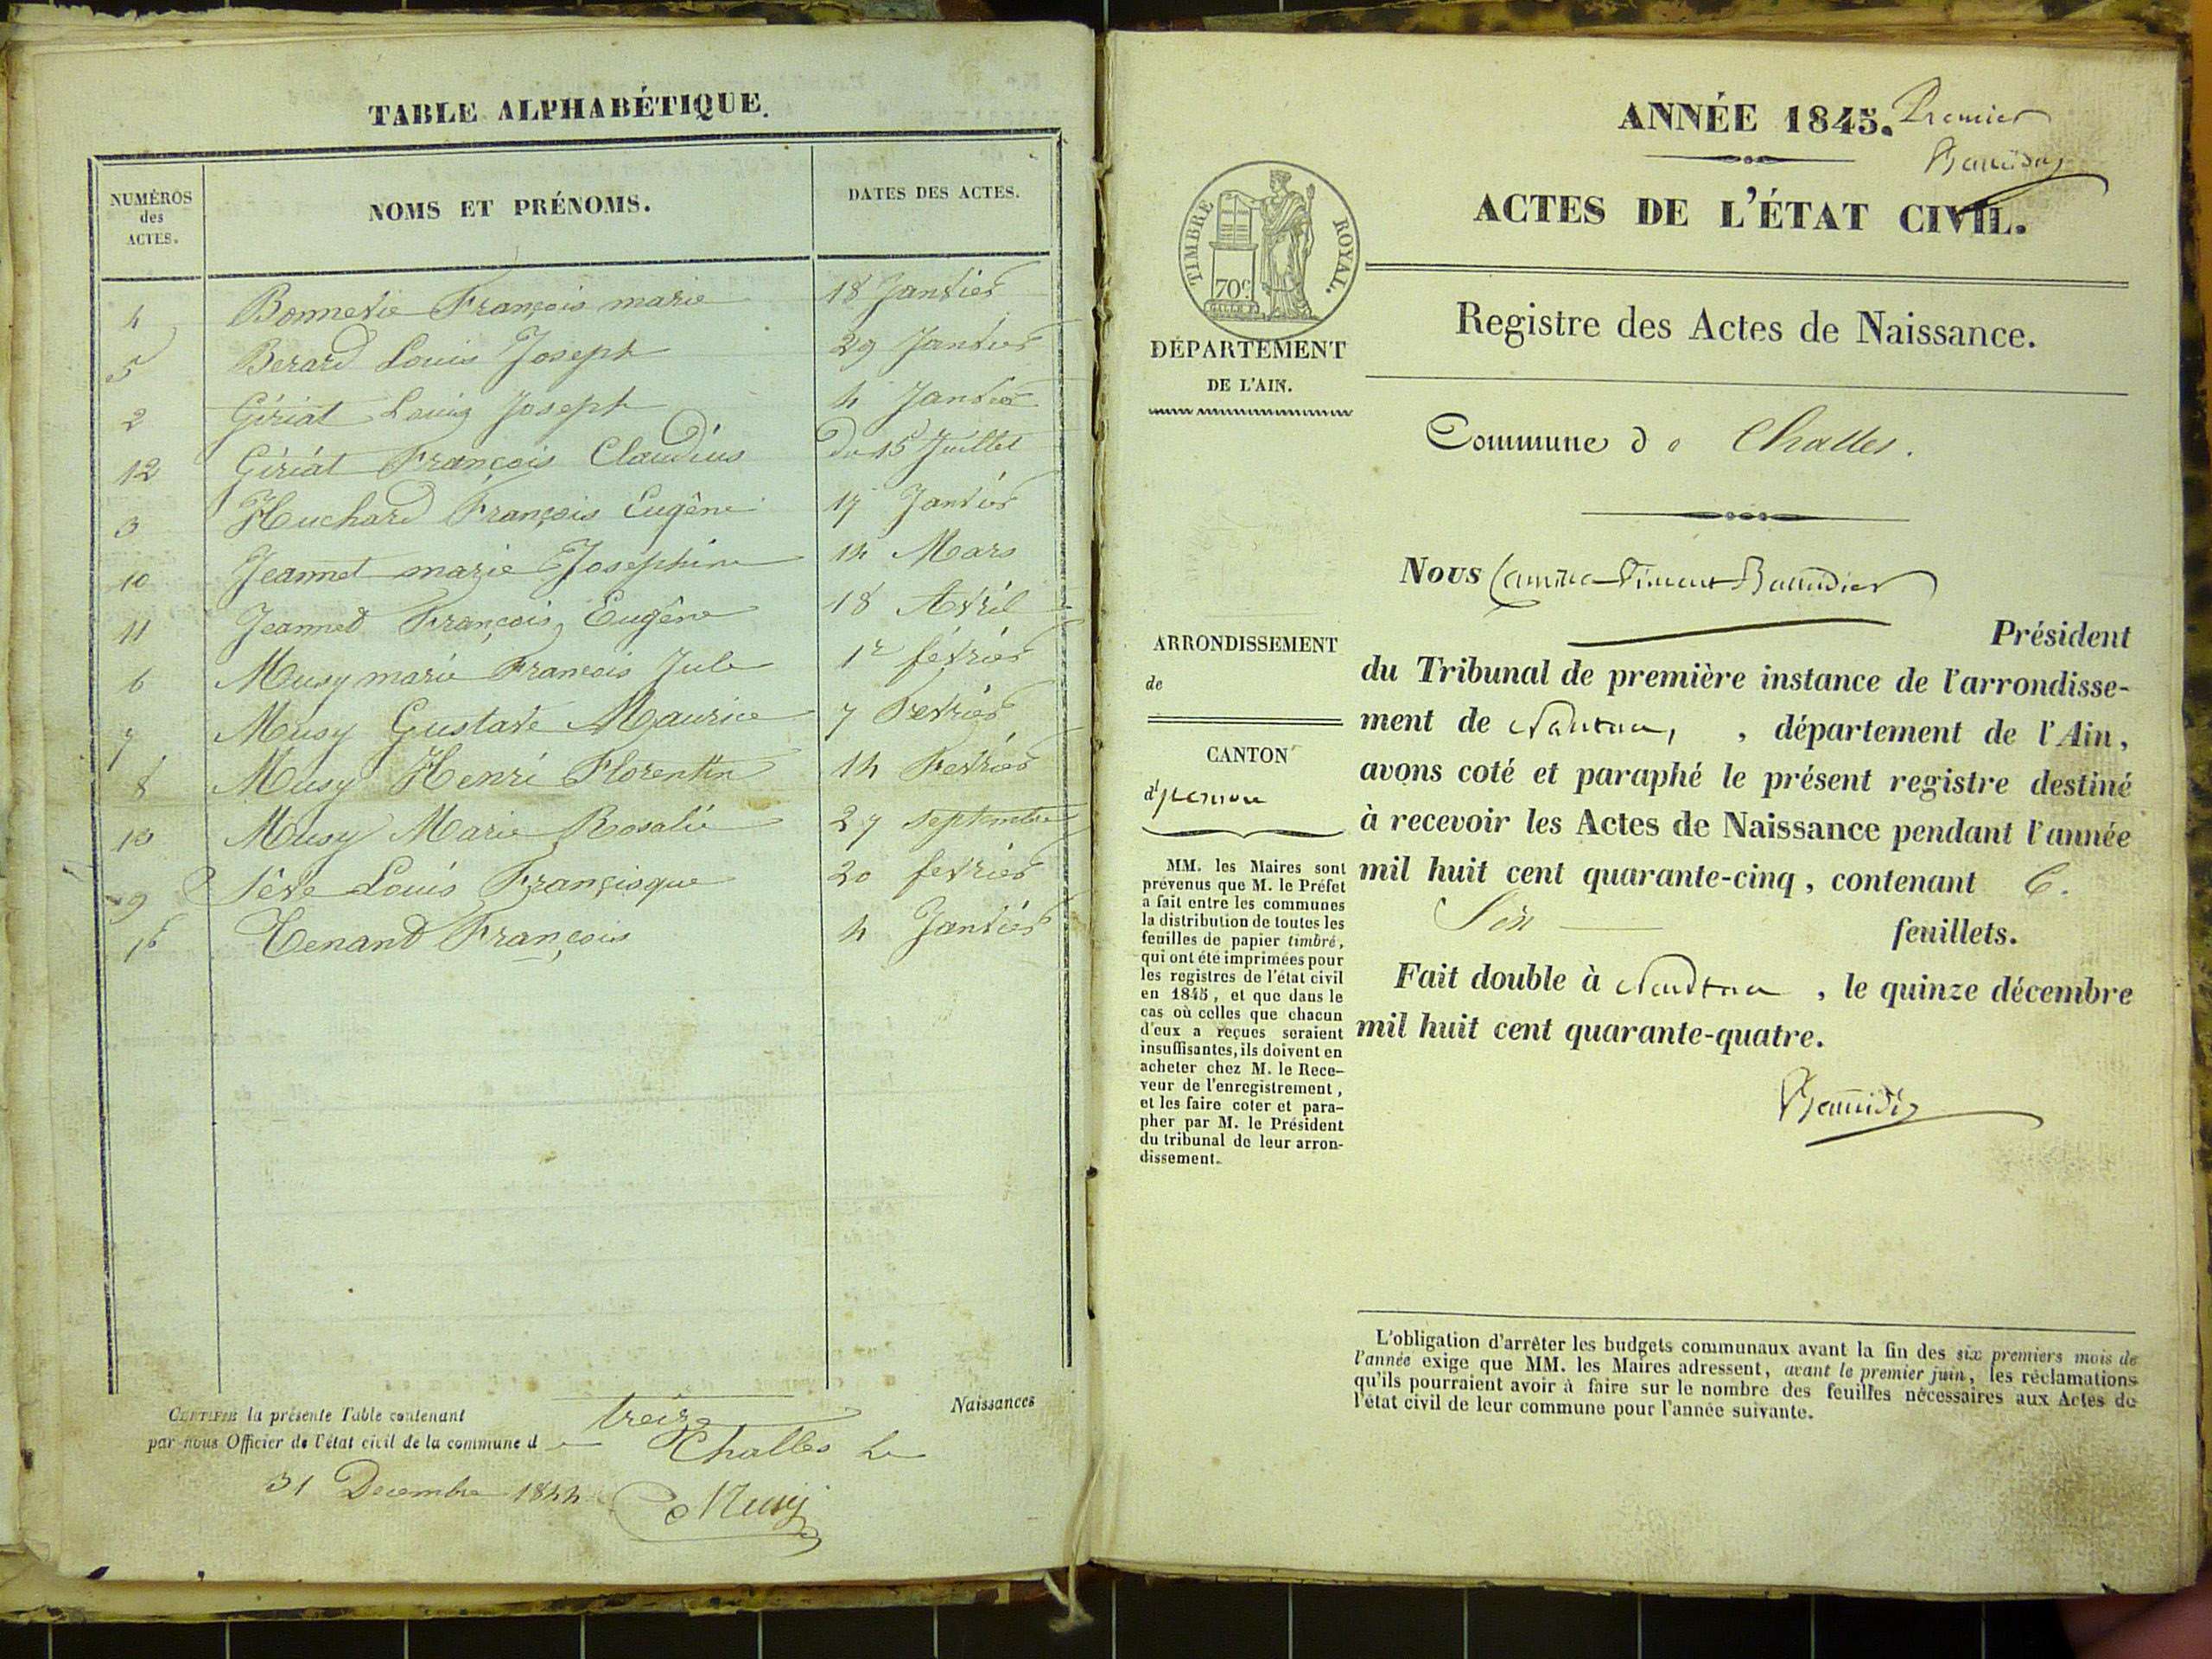 TABLE ALPHABÉTIQUE.
NUMÉROS
des
ACTES.
NOMS ET PRÉNOMS.
DATES DES ACTES.
4 Bonnevie François marie 18 Janvier
5 Berard Louis Joseph 29 Janvier
2 Giriat Louis Joseph 4 Janvier
12 Giriat François Claudius du 15 Juillet
3 Huchard François Eugène 17 Janvier
10 Jeannet marie Josephine 14 Mars
11 Jeannet François Eugène 18 Avril
6 Musy marie François Jule 1r février
7 Musy Gustave Maurice 7 Fevrier
8 Musy Henri Florentin 14 Fevrier
Musy Marie Rosalie 27 septembre
9 Sève Louis Françisque 20 fevrier
Tenand François 4 Janvier
CERTIFIÉE la présente Table contenant treize Naissances
par nous Officier de l'état civil de la commune de Challes le
31 Decembre 1844
Musy
ANNÉE 1845. Premier
ACTES DE L'ÉTAT CIVIL.
TIMBRE ROYAL.
70c
DÉPARTEMENT
DE L'AIN.
Registre des Actes de Naissance.
Commune de Challes.
Nous
Président
du Tribunal de première instance de l'arrondisse-
ment de Nantua, , département de l'Ain,
avons coté et paraphé le présent registre destiné
à recevoir les Actes de Naissance pendant l'année
mil huit cent quarante-cinq, contenant 6.
Six feuillets.
Fait double à Nantua, le quinze décembre
mil huit cent quarante-quatre.
ARRONDISSEMENT
de
CANTON
d'
MM. les Maires sont
prévenus que M. le Préfet
a fait entre les communes
la distribution de toutes les
feuilles de papier timbré,
qui ont été imprimées pour
les registres de l'état civil
en 1845, et que dans le
cas où celles que chacun
d'eux a reçues seraient
insuffisantes, ils doivent en
acheter chez M. le Rece-
veur de l'enregistrement,
et les faire coter et para-
pher par M. le Président
du tribunal de leur arron-
dissement.
L'obligation d'arrêter les budgets communaux avant la fin des six premiers mois de
l'année exige que MM. les Maires adressent, avant le premier juin, les réclamations
qu'ils pourraient avoir à faire sur le nombre des feuilles nécessaires aux Actes de
l'état civil de leur commune pour l'année suivante.